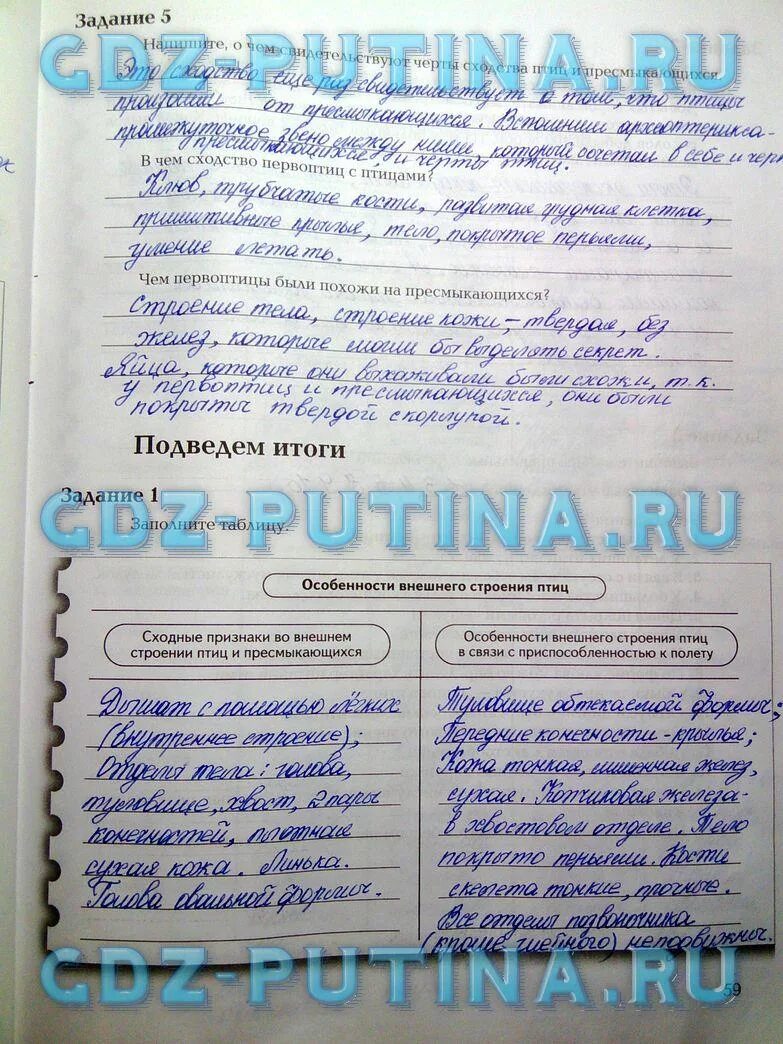 Задание 5
Напишите, о чем свидетельствуют черты сходства птиц и пресмыкающихся.
GDZ-PUTINA.RU
Это сходство еще раз свидетельствует о том, что птицы
произошли от пресмыкающихся. Вспомним археоптерикса-
промежуточное звено между ними, который сочетал в себе и черты
пресмыкающихся, и черты птиц.
В чем сходство первоптиц с птицами?
Клюв, трубчатые кости, развитая грудная клетка,
примитивные крылья, тело, покрытое перьями,
умение летать.
Чем первоптицы были похожи на пресмыкающихся?
GDZ-PUTINA.RU
Строение тела, строение кожи - твердая, без
желез, которые могли бы выделять секрет.
Яйца, которые они выхаживали были схожи, т.к.
у первоптиц и пресмыкающихся, они были
покрыты твердой скорлупой.
Подведем итоги
Задание 1
GDZ-PUTINA.RU
Заполните таблицу.
Особенности внешнего строения птиц
Сходные признаки во внешнем
строении птиц и пресмыкающихся
Особенности внешнего строения птиц
в связи с приспособленностью к полету
Дышат с помощью лёгких
(внутреннее строение);
Отделы тела: голова,
туловище, хвост, 2 пары
конечностей, плотная
сухая кожа. Линька.
Голова овальной формы.
Туловище обтекаемой формы;
Передние конечности - крылья;
Кожа тонкая, лишенная желез,
сухая. Копчиковая железа-
в хвостовом отделе. Тело
покрыто перьями. Кости
скелета тонкие, прочные.
Все отделы позвоночника
(кроме шейного) неподвижны.
GDZ-PUTINA.RU
59